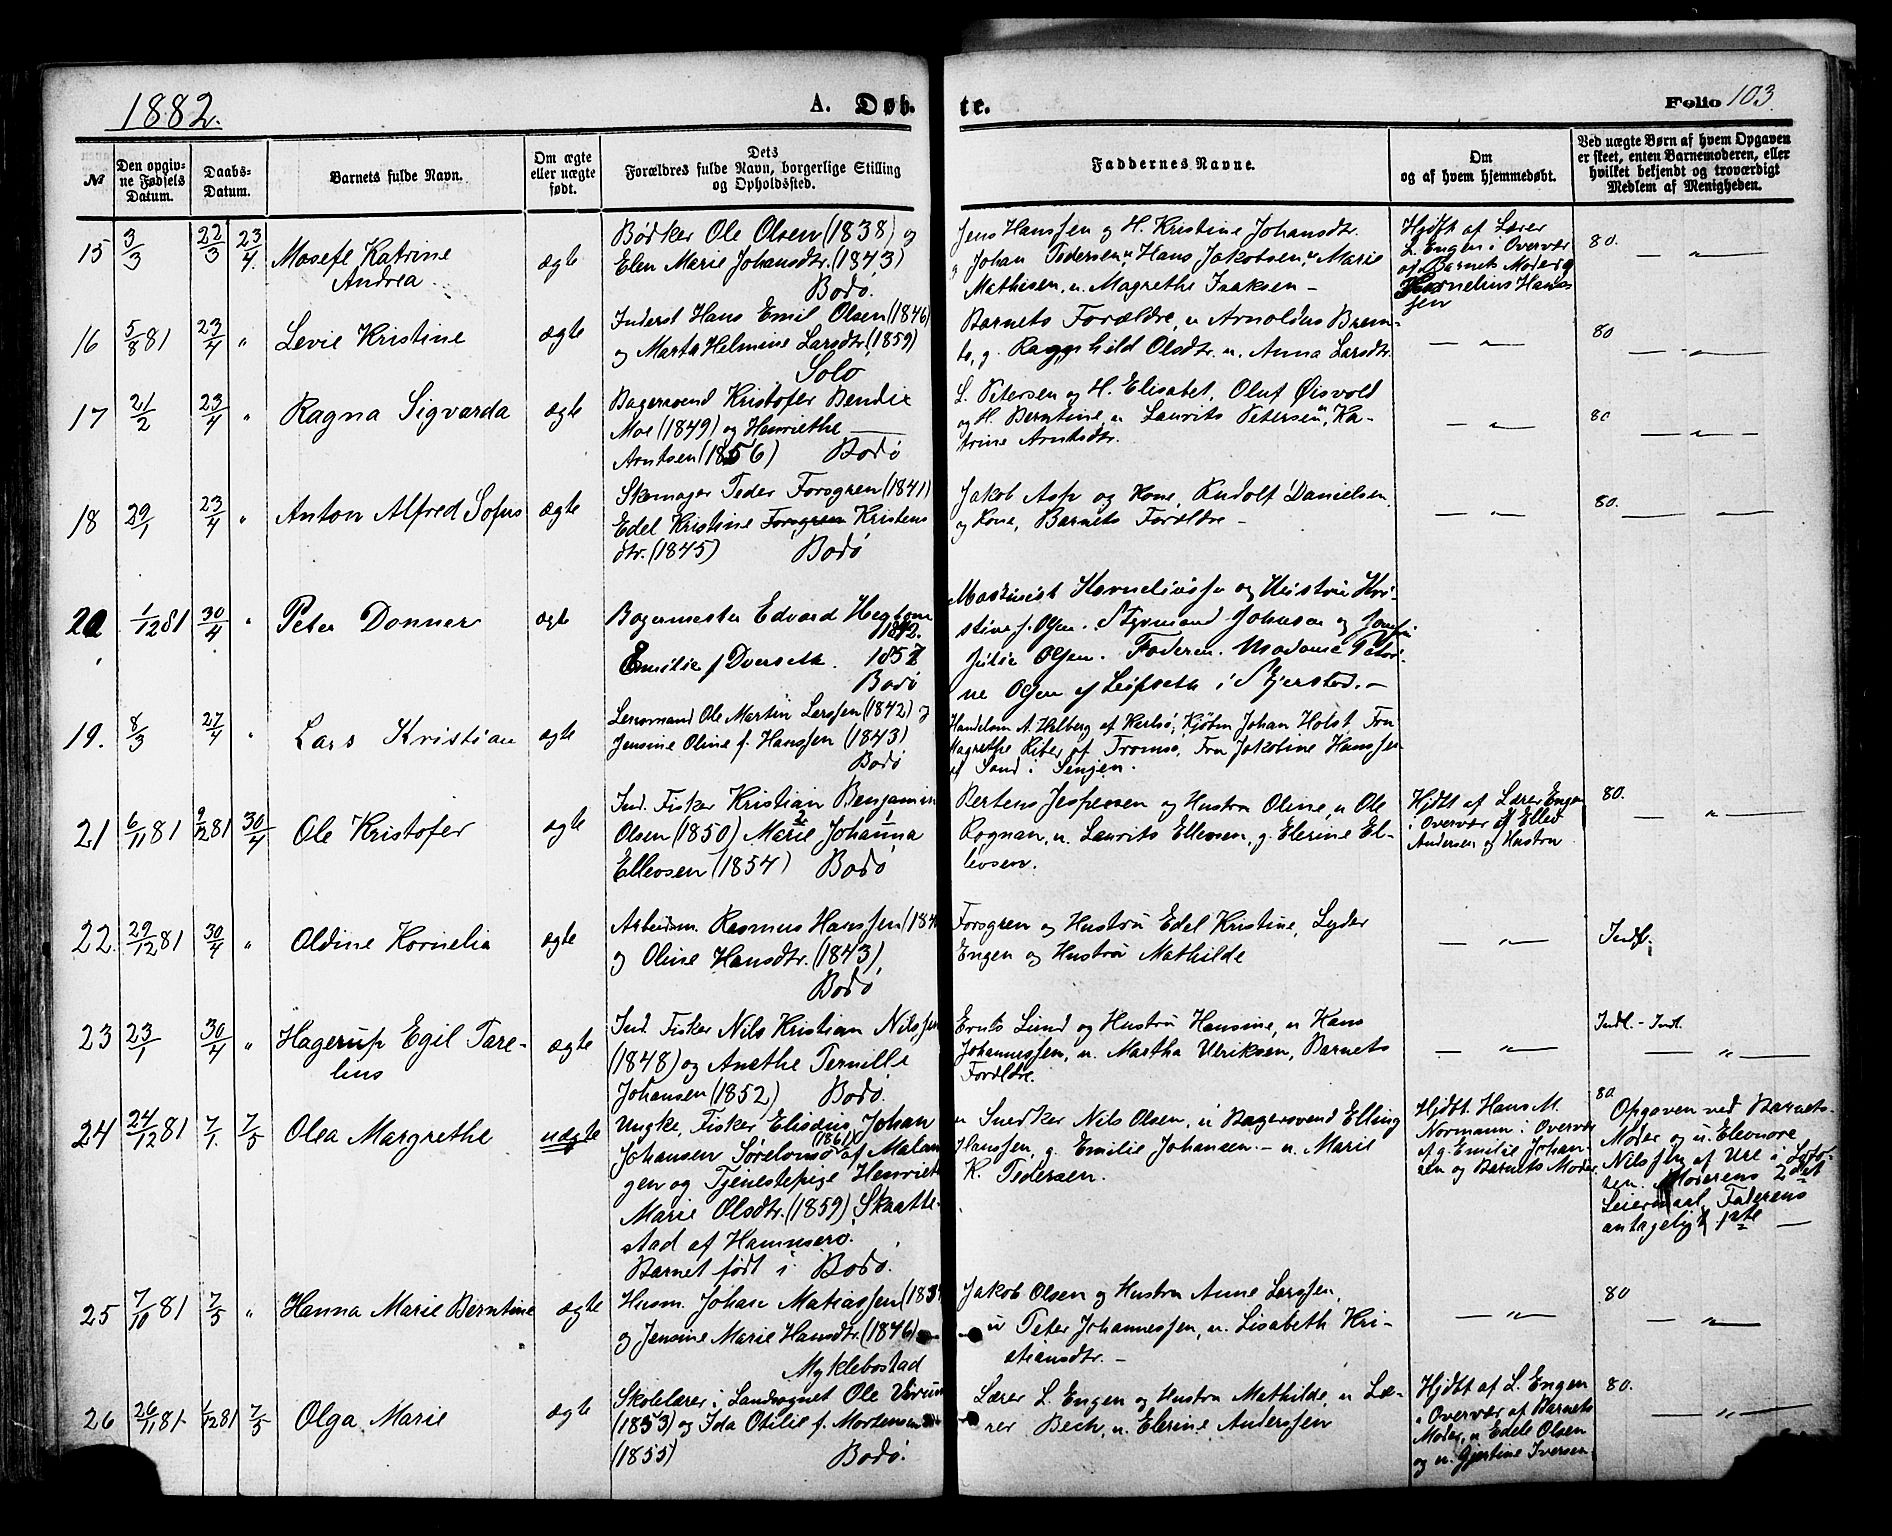 1882.
A. Døb-
te.
Folio 103.
№
Den opgiv-
ne Fødsels
Datum.
Daabs-
Datum.
Barnets fulde Navn.
Om ægte
eller uægte
født.
Dets
Forældres fulde Navn, borgerlige Stilling
og Opholdssted.
Faddernes Navne.
Om
og af hvem hjemmedøbt.
Ved uægte Børn af hvem Opgaven
er skeet, enten Barnemoderen, eller
hvilket bekjendt og troværdigt
Medlem af Menigheden.
15 3/3 22/3 23/4. Mosefe Katrine
Andrea
ægte
Bødker Ole Olsen (1838) og
Elen Marie Johansdtr. (1843)
Bodø.
Jens Hanssen og H. Kristine Johansdtr.
g Johan Pedersen, u Hans Jakobsen, u Marie
Mathisen, u. Magrethe Isaksen –
Hjdt af Lærer
L. Engen i Overvær
af Barnets Moder og
Kornelius Hans-
sen
80.
— „ —
16 5/8 81 23/4 „ Levie Kristine
ægte
Inderst Hans Emil Olsen (1846)
og Marta Helmine Larsdtr. (1859)
Solo
Barnets Forældre, u Arnoldus Brem-
, g. Ragnhild Olsdtr. u. Anna Larsdtr.
— „ —
80
— „ —
17 21/2 23/4 „ Ragna Sigvarda
ægte
Bagersvend Kristofer Bendix
Moe (1849) og Henriethe —
Arntsen (1856) Bodø
L. Petersen og H. Elisabet, Oluf Øisvold
og H. Berntine, u Laurits Petersen, u Ka-
trine Arntsdtr.
— „ —
80
— „ —
18 29/1 23/4 „ Anton Alfred Sofus
ægte
Skomager Peder Forsgren (1841)
Edel Kristine Forsgren Kristens
dtr. (1845) Bodø
Jakob Asp og Kone, Rudolf Danielsen
og Kone, Barnets Forældre –
— „ —
80.
— „ —
20 1/12 81 30/4 „ Peter Donner
ægte
Bagermester Edvard
1842.
Emilie f Dverseth. 1857
Bodø
Maskinist Korneliussen og Hustru Kri-
stine f. Olsen. Styrmand Johnsen og
Julie Olsen. Faderen. Madame Petri-
ne Olsen af Leifseth i Skjersted. –
19. 8/3 27/4 „ Lars Kristian
ægte
Lensmand Ole Martin Larssen (1842) og
Jensine Oline f. Hanssen (1843)
Bodø
Handelsm A. Halberg af Karlsø, Kjøbm Johan Holst, Fru
Magrethe Riber af Tromsø, Fru Jakobine Hanssen
af Sand i Senjen.
21 6/11 81 9/12 81 30/4 Ole Kristofer
ægte
Ind. Fisker Kristian Benjamin
Olsen (1850) Marie 2 Johanna 1
Ellevsen (1854) Bodø
Bertens Jespersen og Hustru Oline, u Ole
Rognan, u. Laurits Ellevsen, g. Elerine El-
levsen.
Hjdt af Lærer Engen
i Overvær af Elled
Andersen og Hustru
80.
— „ —
22. 29/12 81 30/4 „ Oldine Kornelia
ægte
Arbeidsm. Rasmus Hanssen (184
og Oline Hansdtr. (1843)
Bodø
Forsgren og Hustru Edel Kristine, Lyder
Engen og Hustru Mathilde
— „ —
Indl.
23 23/1 30/4 „ Hagerup Egil Tare-
lius
ægte
Ind. Fisker Nils Kristian Nilssen
(1848) og Anethe Pernille
Johansen (1852) Bodø.
Ernts Lund og Hustru Hansine, u Hans
Johannessen, u. Martha Ulriksen, Barnets
Forældre.
— „ —
Indl. – Indl.
— „ —
24 24/12 81 7/1. 7/5 Olea Margrethe
uægte
Ungk. Fisker Elisæus Johan
Johansen Sørelvmo (1861) af Malan-
gen og Tjenestepige Henriet
Marie Olsdtr. (1859) Skaatte-
stad af Hammerø.
Barnet født i Bodø.
u Snedker Nils Olsen, u Bagersvend Elling
Hanssen, g. Emilie Johansen. – u. Marie
K. Pedersen.
Hjdt. Hans M.
Normann i Overvær
af g. Emilie Johan-
sen og Barnets Moder
80
Opgaven ved Barnets
Moder og u. Eleonore
Nilssen af Ure i Lofo-
ten. Moderens 2det
Leiermaal, Faderens
antageligt 1ste —
25 7/10 81 7/5 „ Hanna Marie Berntine
ægte
Husm. Johan Matiassen (1834
og Jensine Marie Hansdtr. (1846)
Myklebostad
Jakob Olsen og Hustru Anne Larssen,
u Peter Johannessen, u. Lisabeth Kri-
stiansdtr. –
— „ —
80
— „ —
26 26/11 81 1/12 81 7/5 Olga Marie
ægte
Skolelærer i Landsognet Ole
(1853) og Ida Otilie f. Mortensen
(1855) Bodø.
Lærer L. Engen og Hustru Mathilde, u Læ-
rer Bech, u. Elerine Anderssen
Hjdt af L. Engen
i Overvær af Barnets
Moder, u Edele Olsen
og u. Gjertine Iversen
80.
— „ —